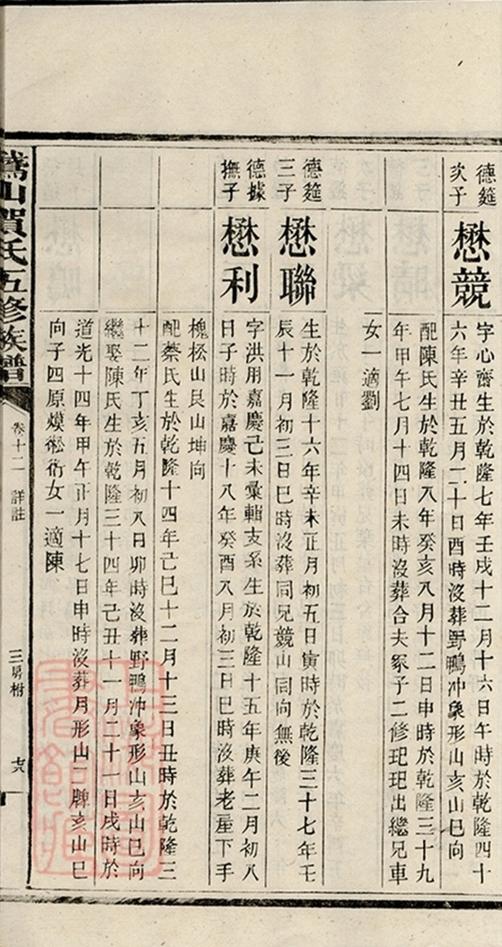 德筵
次子
懋競
字心齋生於乾隆七年壬戌十二月十六日午時於乾隆四十
六年辛丑五月二十日酉時沒葬野鴨冲象形山亥山巳向
配陳氏生於乾隆八年癸亥八月十二日申時於乾隆三十九
年甲午七月十四日未時沒葬合夫冢子二修玘玘出繼兄車
女一適劉
德筵
三子
懋聯
生於乾隆十六年辛未正月初五日寅時於乾隆三十七年壬
辰十一月初三日巳時沒葬同兄競山同向無後
德據
撫子
懋利
字洪用嘉慶己未彙輯支系生於乾隆十五年庚午二月初八
日子時於嘉慶十八年癸酉八月初三日巳時沒葬老屋下手
槐松山艮山坤向
配蔡氏生於乾隆十四年己巳十二月十三日丑時於乾隆三
十二年丁亥五月初八日卯時沒葬野鴨冲象形山亥山巳向
繼娶陳氏生於乾隆三十四年己丑十一月二十一日戌時於
道光十四年甲午正月十七日申時沒葬月形山脾亥山巳
向子四原熯 女一適陳
鵞山賀氏五修族譜
卷十二
詳註
三房